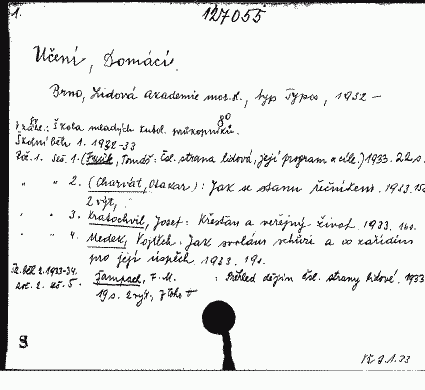 1.
127055
Učení, Domácí.
Brno, Lidová akademie mor.sl., typ Typos, 1932 —
8°
Škola mladých katol. průkopníků.
Školní běh 1. 1932-33
Roč. 1. Seš. 1. (Fusík, Tomáš: Čsl. strana lidová, její program a cíle.) 1933. 22 s.
" " 2. (Charvát, Otakar): Jak se stanu řečníkem. 1933. 15s.
2 výt.
" " 3. Kratochvíl, Josef: Křesťan a veřejný život. 1933. 16s.
" " 4. Medek, Vojtěch: Jak svolám schůzi a co zařídím
pro její úspěch. 1933. 19s.
Šk. běh 2. 1933-34.
roč. 2. seš. 5. F. M. : Přehled dějin čsl. strany lidové. 1933
19 s. 2 výt.
S
1.33